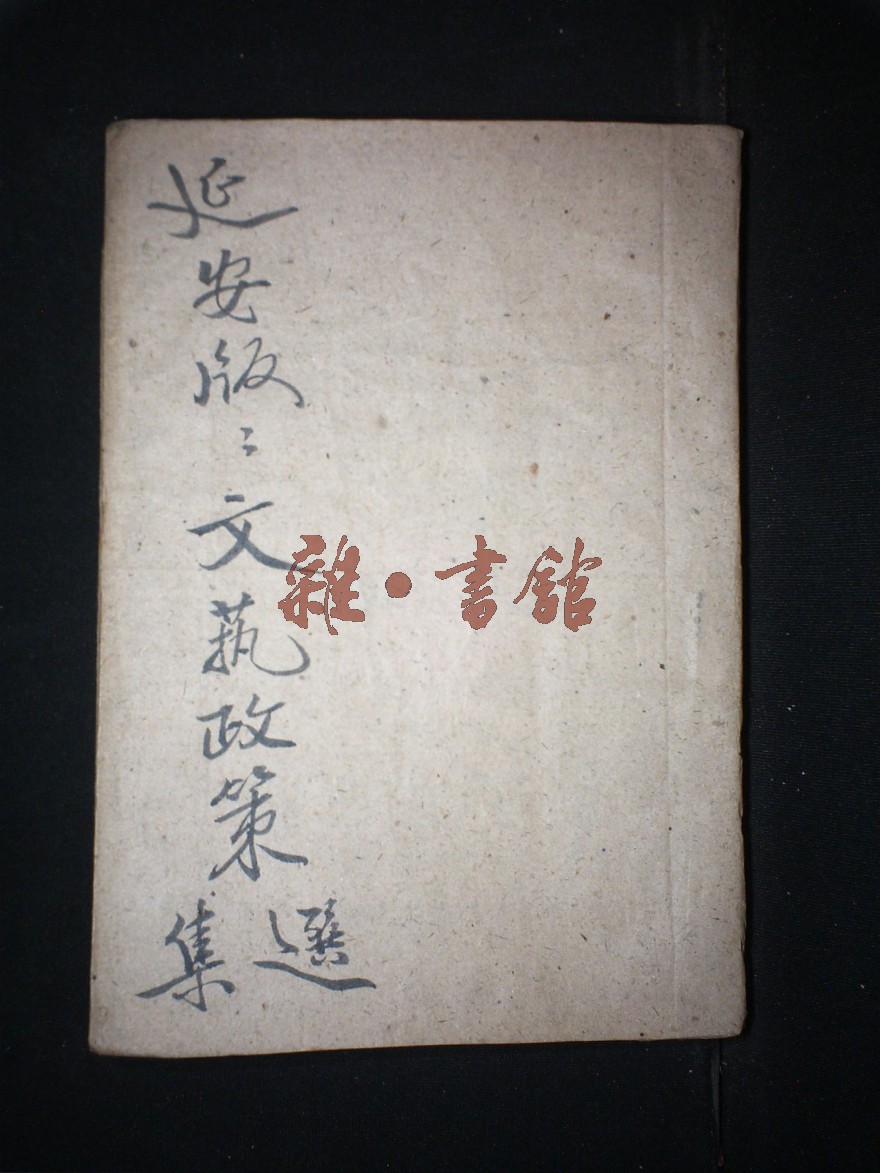 延安版：文藝政策
選集
雜·書館